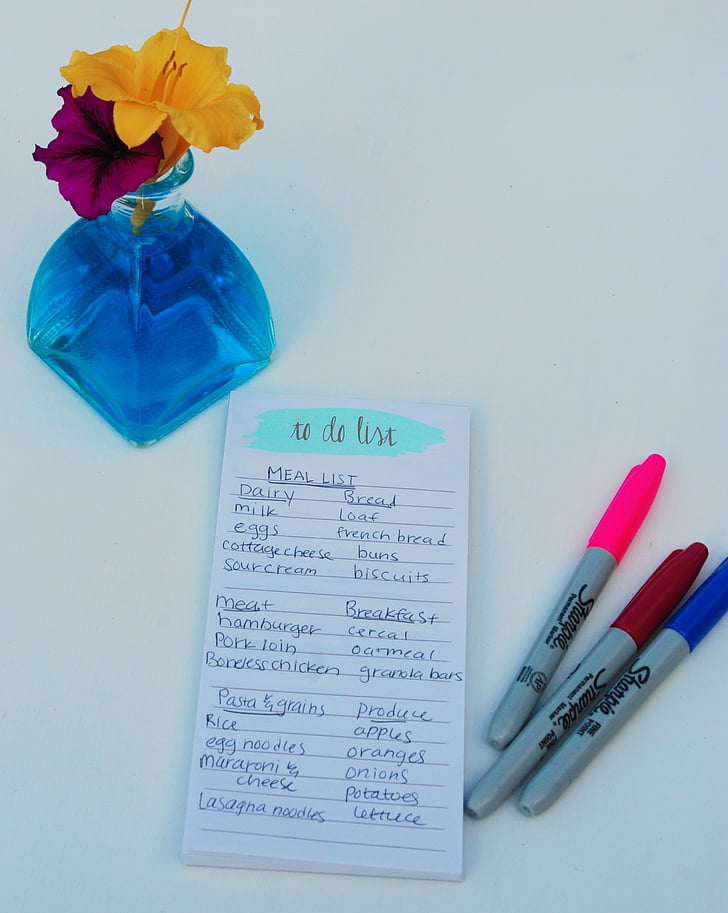 to do list
MEAL LIST
Dairy Bread
milk Loaf
eggs french bread
cottage cheese buns
sour cream biscuits
meat Breakfast
hamburger cereal
Pork loin oatmeal
Boneless chicken granola bars
Pasta & grains Produce
Rice apples
egg noodles oranges
mararoni & onions
cheese potatoes
Lasagna noodles lettuce
Sharpie
Permanent Marker
Sharpie
Permanent Marker
FINE POINT
Sharpie
FINE POINT